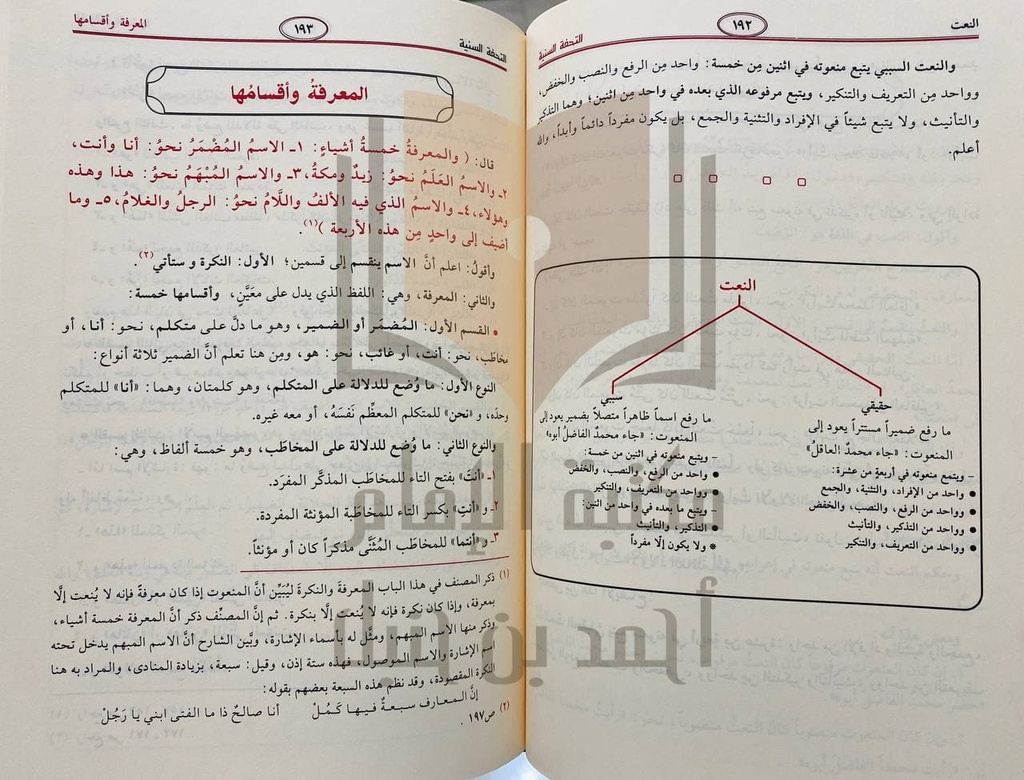 النعت
١٩٢
التحفة السنية
والنعت السببي يتبع منعوته في اثنين مِن خمسة: واحد مِن الرفع والنصب والخفض،
وواحد مِن التعريف والتنكير، ويتبع مرفوعه الذي بعده في واحد مِن اثنين؛ وهما التذكير
والتأنيث، ولا يتبع شيئاً في الإفراد والتثنية والجمع، بل يكون مفرداً دائماً وأبداً، والله
أعلم.
النعت
حقيقي
ما رفع ضميراً مستتراً يعود إلى
المنعوت: «جاء محمدٌ العاقلُ»
– ويتمع منعوته في أربعةٍ من عشرة:
● واحد من الإفراد، والتثنية، والجمع
● وواحد من الرفع، والنصب، والخفض
● وواحد من التذكير، والتأنيث
● وواحد من التعريف، والتنكير
سببي
ما رفع اسماً ظاهراً متصلاً بضمير يعود إلى
المنعوت: «جاء محمدٌ الفاضلُ أبوه»
– ويتبع منعوته في اثنين من خمسة:
● واحد من الرفع، والنصب، والخفض
● وواحد من التعريف، والتنكير
– ويتبع ما بعده في واحد من اثنين:
● التذكير، والتأنيث
● ولا يكون إلّا مفرداً
التحفة السنية
١٩٣
المعرفة وأقسامها
المعرفةُ وأقسامُها
قال: ( والمعرفةُ خمسةُ أشياء: ١ـ الاسمُ المُضْمَرُ نحوُ: أنا وأنت،
٢ـ والاسمُ العَلَمُ نحوُ: زيدٌ ومكةُ، ٣ـ والاسمُ المُبْهَمُ نحوُ: هذا وهذه
وهؤلاء، ٤ـ والاسمُ الذي فيه الألفُ واللَّامُ نحوُ: الرجلُ والغلامُ، ٥ـ وما
أضيف إلى واحدٍ مِن هذه الأربعة )(١).
وأقولُ: اعلم أنَّ الاسم ينقسم إلى قسمين؛ الأول: النكرة و ستأتي(٢).
والثاني: المعرفة، وهي: اللفظ الذي يدل على معَيَّن، وأقسامها خمسة:
• القسم الأول: المُضمَر أو الضمير، وهو ما دلَّ على متكلم، نحو: أنا، أو
مخاطَب، نحو: أنت، أو غائب، نحو: هو، ومِن هنا تعلم أنَّ الضمير ثلاثة أنواع:
النوع الأول: ما وُضع للدلالة على المتكلم، وهو كلمتان، وهما: «أنا» للمتكلم
وحدَه، و «نحن» للمتكلم المعظِّم نَفسَهُ، أو معه غيره.
والنوع الثاني: ما وُضع للدلالة على المخاطَب، وهو خمسة ألفاظ، وهي:
١ـ «أنتَ» بفتح التاء للمخاطَب المذكَّر المفرَد.
٢ـ و «أنتِ» بكسر التاء للمخاطَبة المؤنثة المفردة.
٣ـ و «أنتما» للمخاطَب المُثنَّى مذكراً كان أو مؤنثاً.
(١) ذكر المصنف في هذا الباب المعرفة والنكرةَ ليُبَيِّن أنَّ المنعوت إذا كان معرفةً فإنه لا يُنعت إلَّا
بمعرفة، وإذا كان نكرة فإنه لا يُنعت إلَّا بنكرة. ثم إنَّ المصنِّف ذكر أنَّ المعرفة خمسة أشياء،
وذكر منها الاسم المبهم، ومثَّل له بأسماء الإشارة، وبيَّن الشارح أنَّ الاسم المبهم يدخل تحته
اسم الإشارة والاسم الموصول، فهذه ستة إذن، وقيل: سبعة، بزيادة المنادى، والمراد به هنا
النكرة المقصودة، وقد نظم هذه السبعة بعضهم بقوله:
إنَّ المعارف سبعةٌ فيها كَمُلْ أنا صالحٌ ذا ما الفتى ابني يا رَجُلْ
(٢) ص١٩٧ .
مكتبة الإمام
أحمد بن حنبل